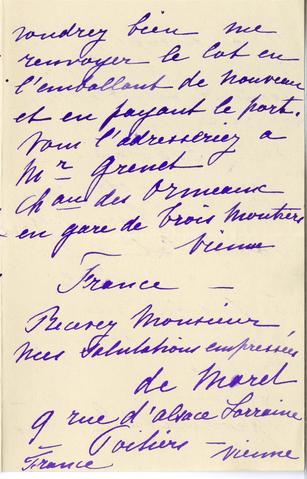 voudrez bien me
renvoyer le lot en
l'emballant de nouveau
et en payant le port.
Vous l'adresseriez a
Mr Grenet
Chau des Ormeaux
en gare de Trois Moutiers
Vienne
France —
Recevez Monsieur
mes salutations empressées
de Maret
9 rue d'alsace Lorraine
Poitiers — Vienne
France